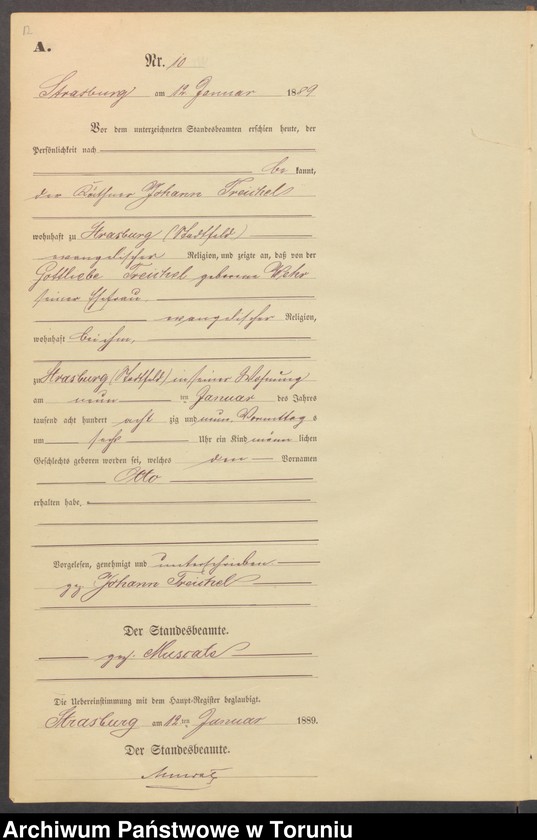 12
A.
Nr. 10
Strasburg am 12 Januar 1889
Vor dem unterzeichneten Standesbeamten erschien heute, der
Persönlichkeit nach
be kannt,
der Käthner Johann Treichel
wohnhaft zu Strasburg (Stadtfeld)
evangelischer Religion, und zeigte an, daß von der
Gottliebe Treichel geborene
seiner Ehefrau
evangelischer Religion,
wohnhaft bei ihm,
zu Strasburg (Stadtfeld) in seiner Wohnung
am neun ten Januar des Jahres
tausend acht hundert acht zig und neun, Vormittag s
um sechs Uhr ein Kind männ lichen
Geschlechts geboren worden sei, welches den Vornamen
Otto
erhalten habe,
Vorgelesen, genehmigt und unterschrieben
gez. Johann Treichel
Der Standesbeamte.
gez.
Die Uebereinstimmung mit dem Haupt-Register beglaubigt.
Strasburg am 12 ten Januar 1889.
Der Standesbeamte.
Archiwum Państwowe w Toruniu